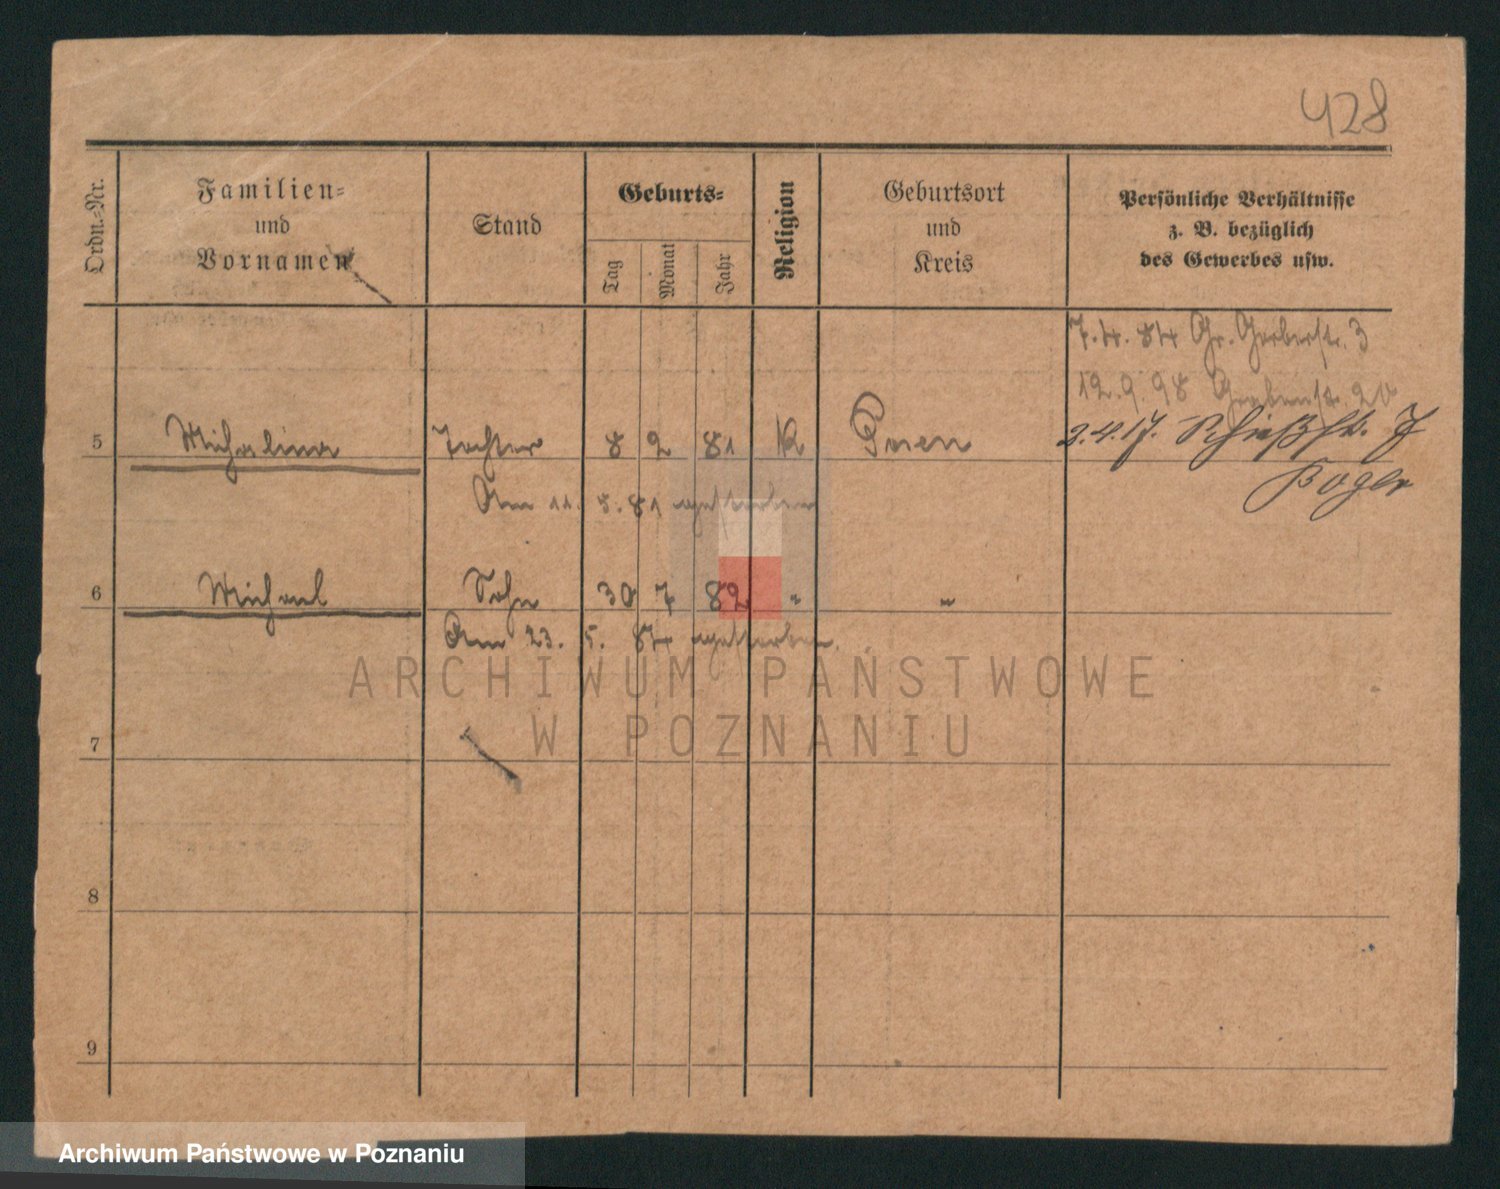 428
Ordn.-Nr.
Familien-
und
Vornamen
Stand
Geburts-
Tag
Monat
Jahr
Religion
Geburtsort
und
Kreis
Persönliche Verhältnisse
z. B. bezüglich
des Gewerbes usw.
7.4.84 Gr. Gerberstr. 3
12.9.98 Grabenstr. 20
5 Michalina Tochter 8 2 81 K Posen 2.4.17. Schießstr. 7
Am 11. 5. 81 gestorben
6 Michael Sohn 30 7 82 " "
Am 23. 5. 84 gestorben.
ARCHIWUM PAŃSTWOWE
W POZNANIU
7
8
9
Archiwum Państwowe w Poznaniu